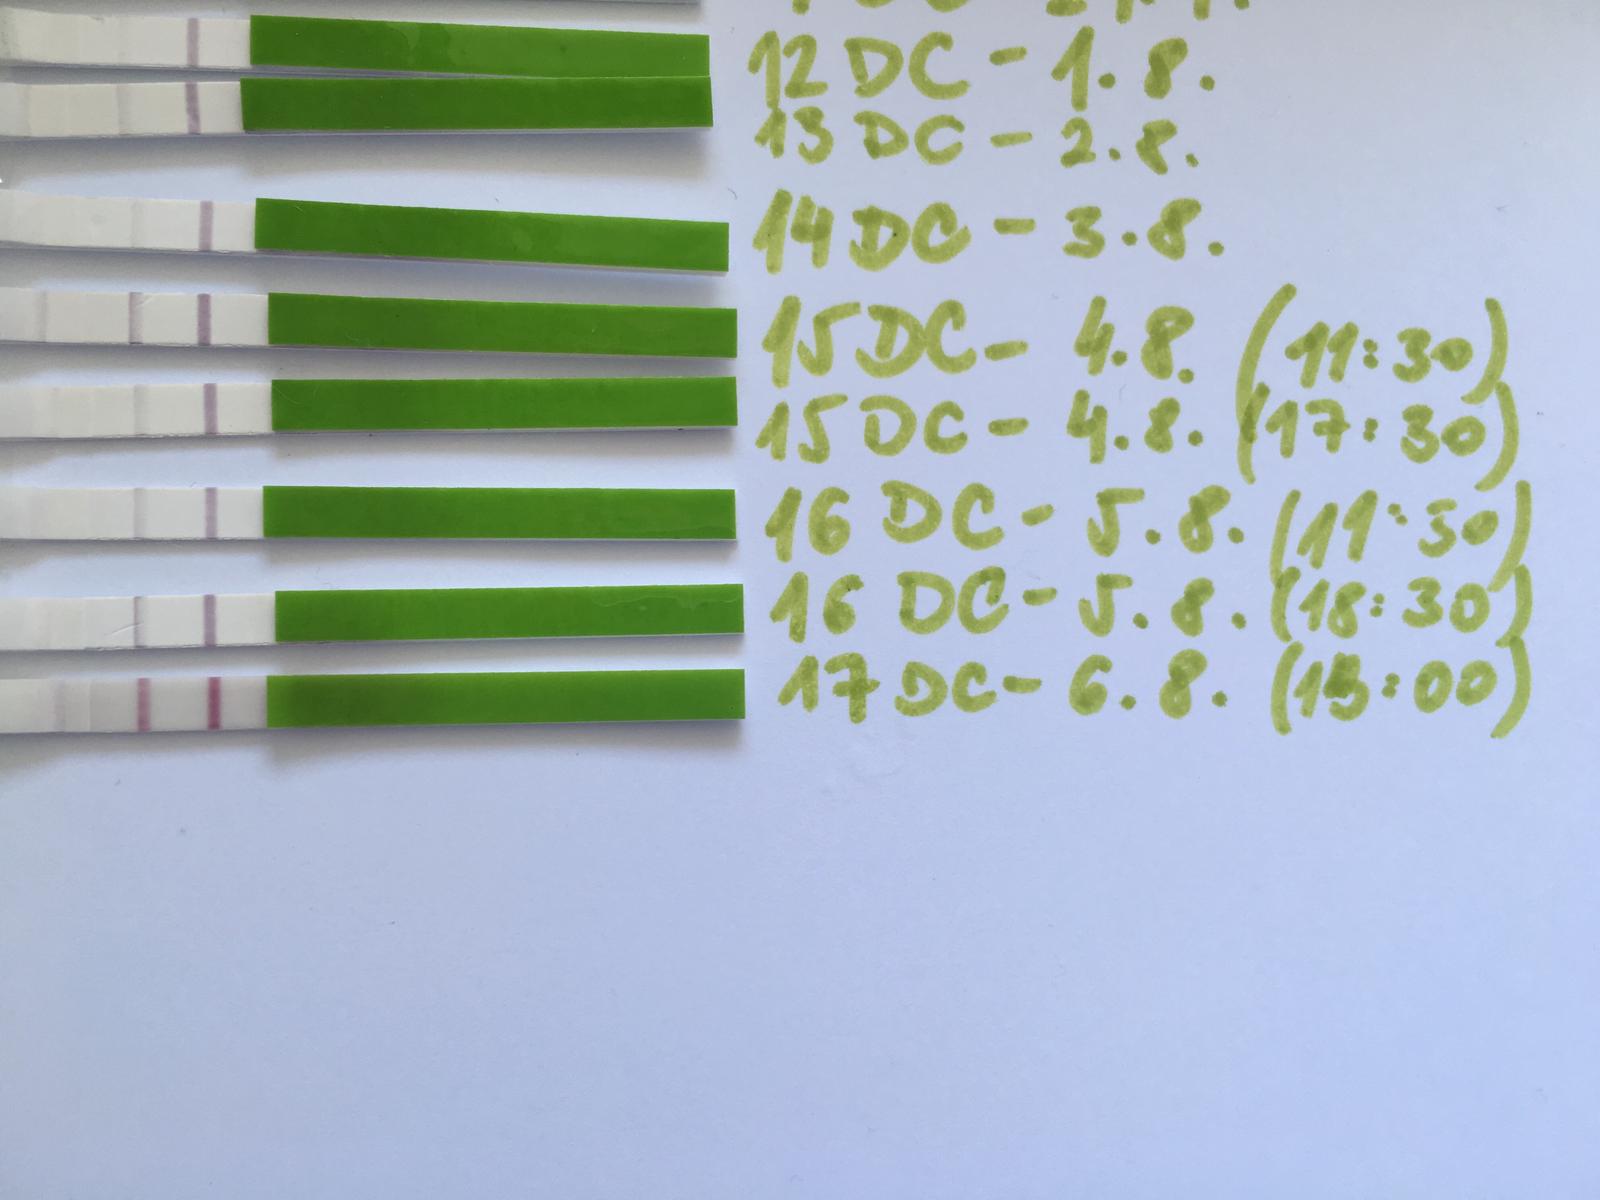 12 DC - 1.8.
13 DC - 2.8.
14 DC - 3.8.
15 DC - 4.8. (11:30)
15 DC - 4.8. (17:30)
16 DC - 5.8. (11:30)
16 DC - 5.8. (18:30)
17 DC - 6.8. (15:00)